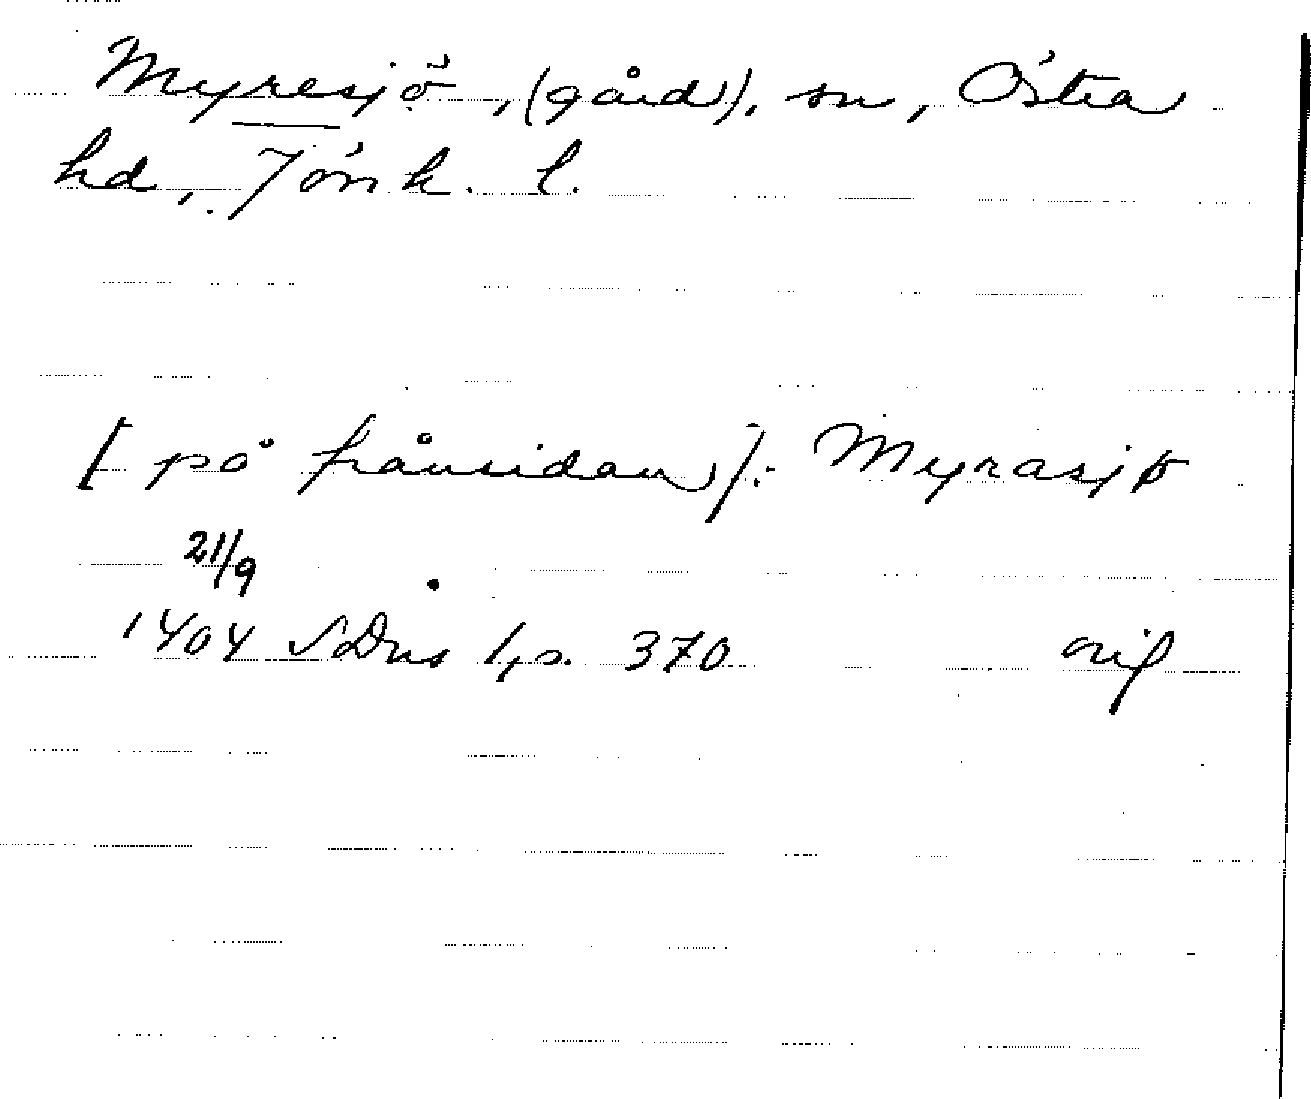 Myresjö, (gård), sn, Östra
hd, Jönk. l.
[på frånsidan]: Myrasjø
21/9
1404 SDns 1, s. 370 orig